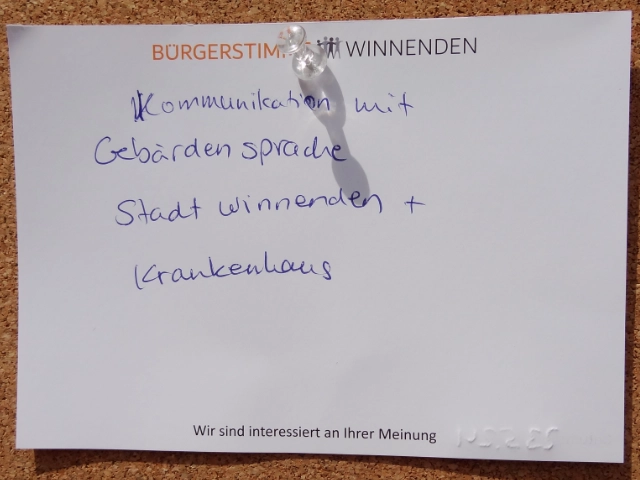 BÜRGERSTIMME WINNENDEN
Kommunikation mit
Gebärdensprache
Stadt Winnenden +
Krankenhaus
Wir sind interessiert an Ihrer Meinung